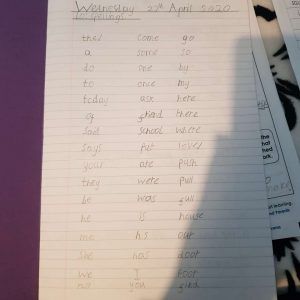 Wednesday 22nd April 2020
Spellings
the come go
a some so
do one by
to once my
today ask here
of friend there
said school where
says put love
your are push
they were pull
be was full
he is house
me his our
she has door
we I poor
no you find